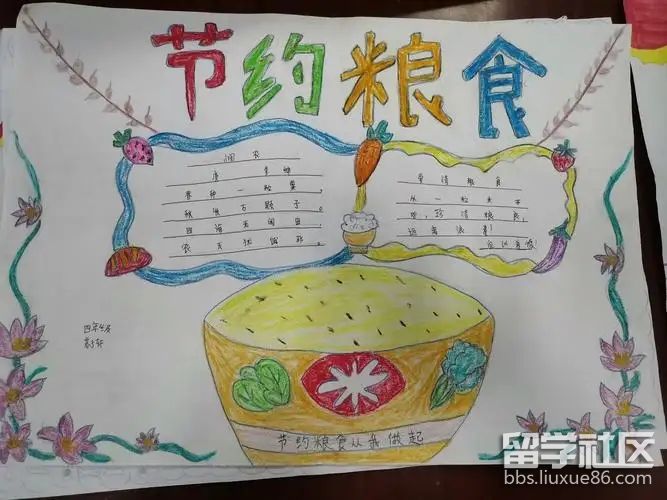 节约粮食
悯农
唐 李绅
春种一粒粟，
秋收万颗子。
四海无闲田，
农夫犹饿死。
爱惜粮食
从一粒米开
始，珍惜粮食，
远离浪费！
四年级
节约粮食从我做起
留学社区
bbs.liuxue86.com